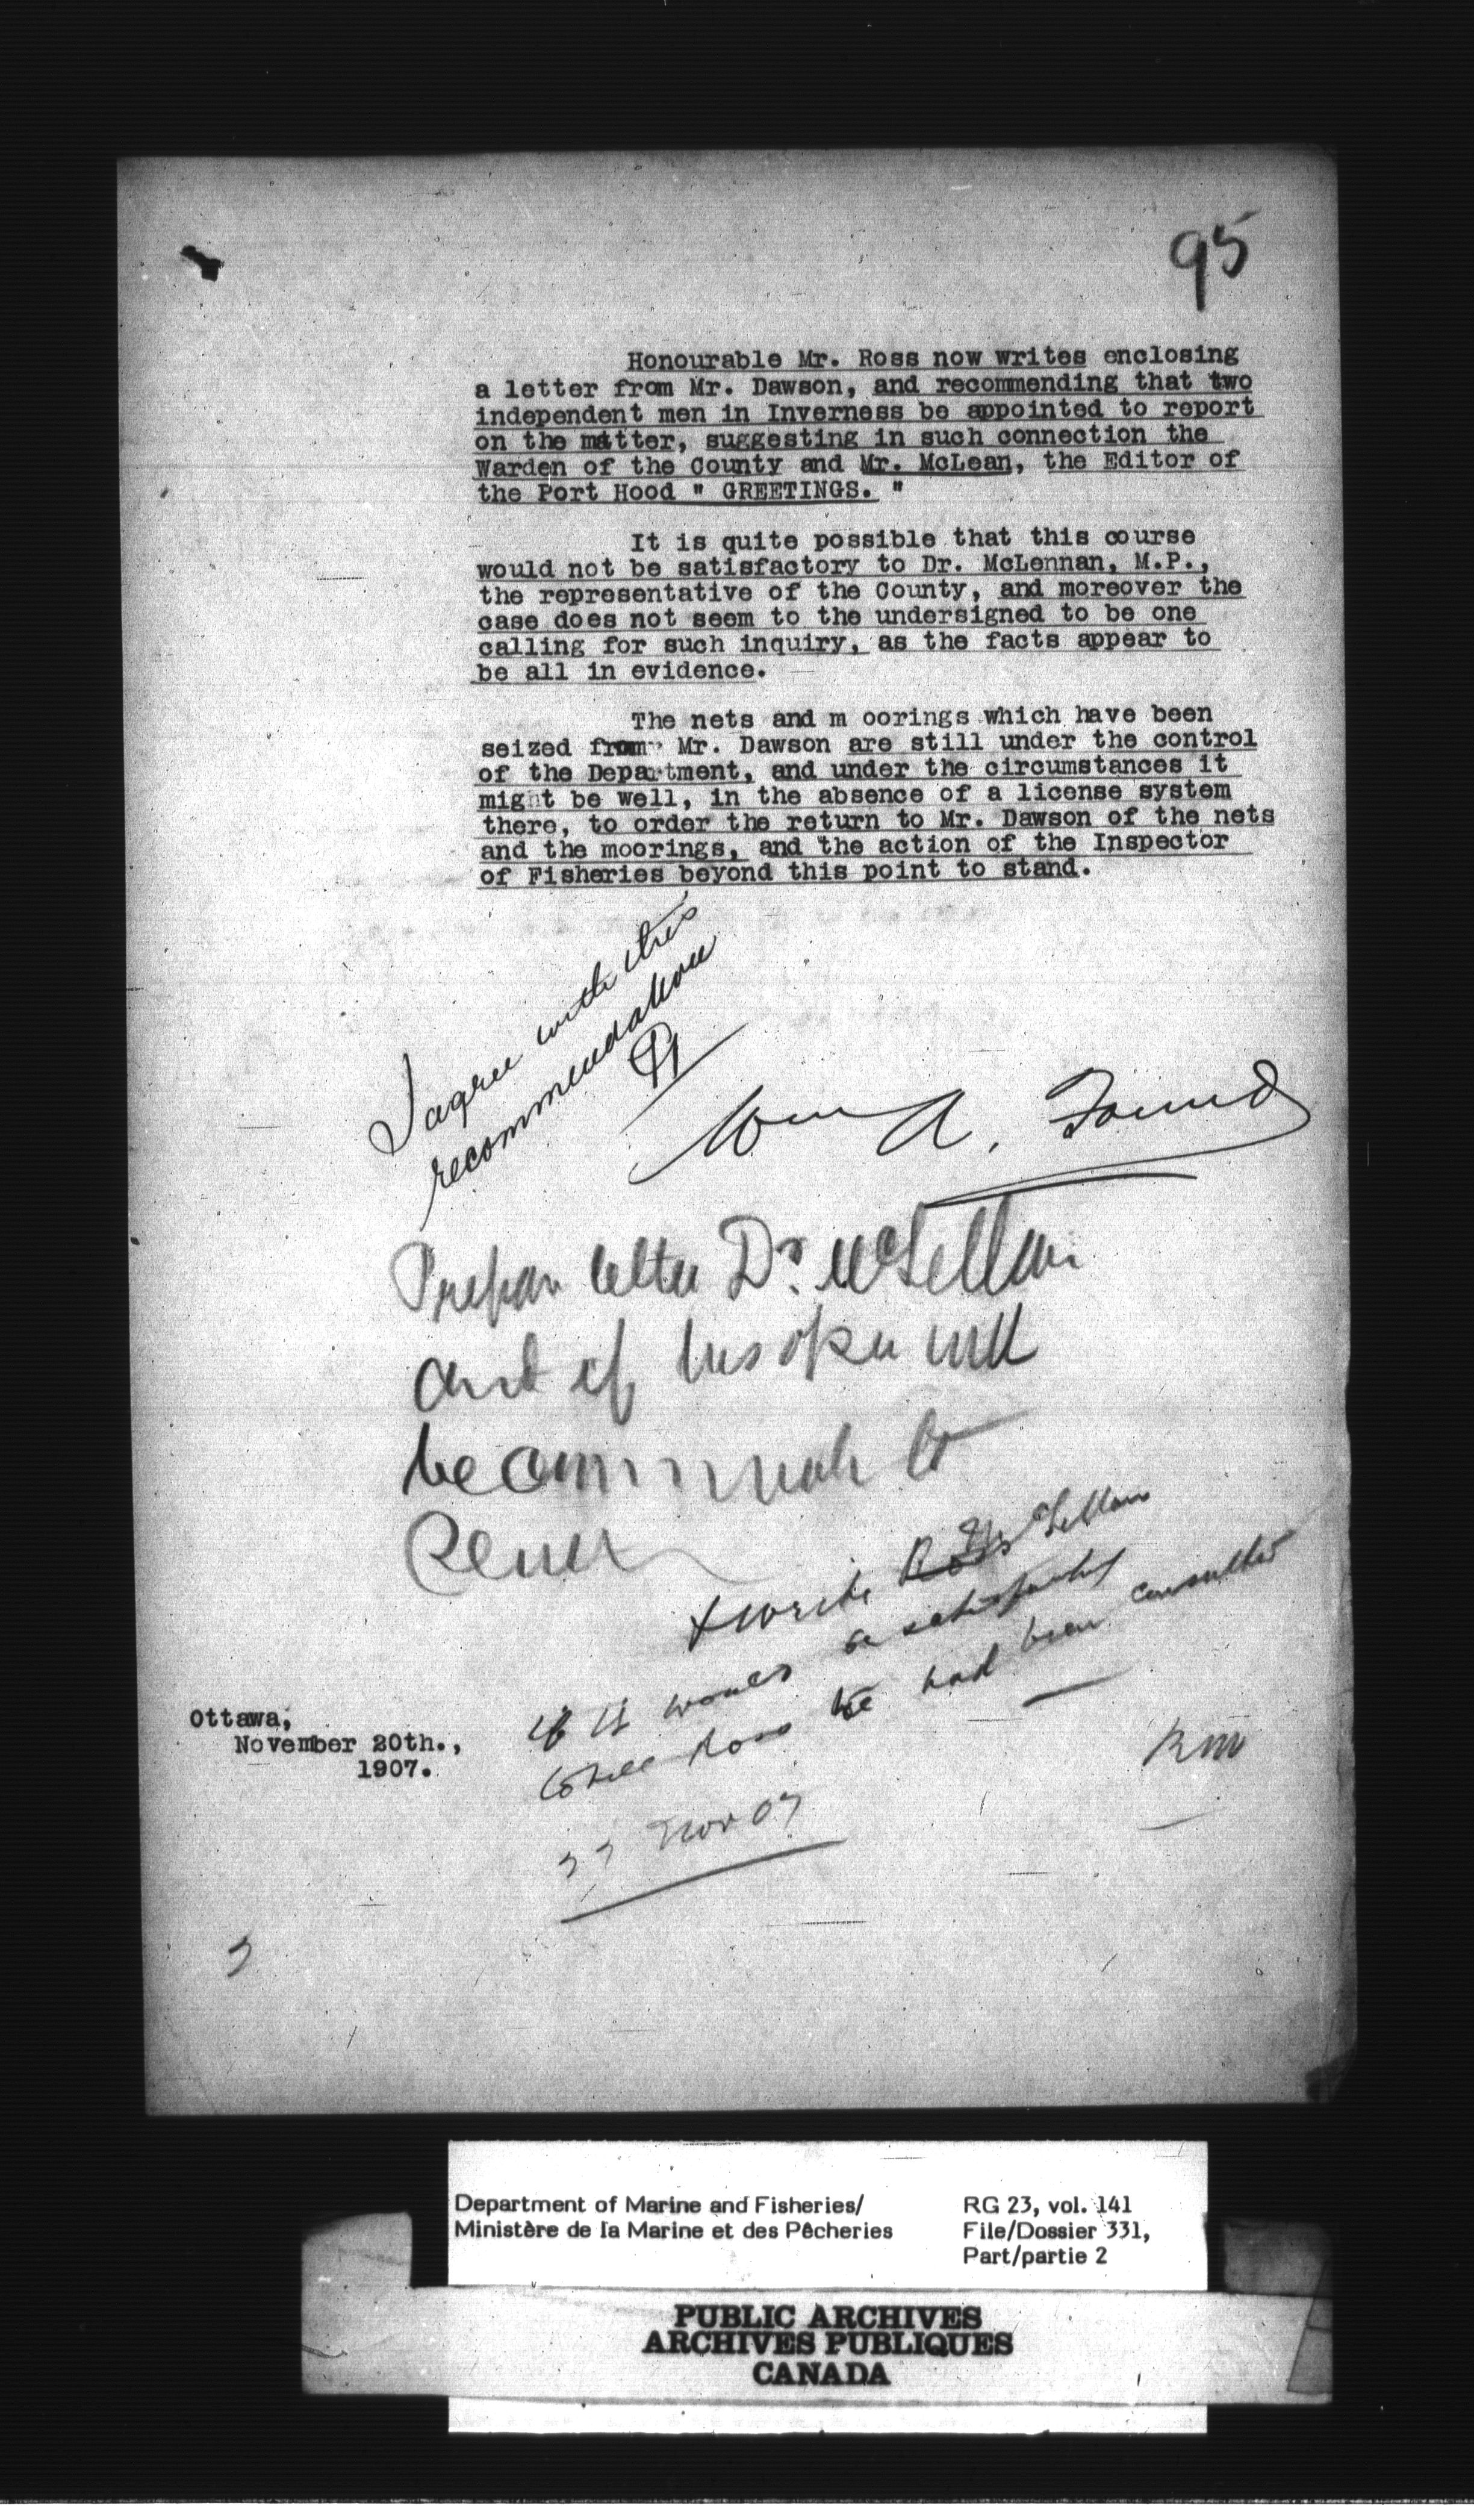 95
Honourable Mr. Ross now writes enclosing
a letter from Mr. Dawson, and recommending that two
independent men in Inverness be appointed to report
on the matter, suggesting in such connection the
Warden of the County and Mr. McLean, the Editor of
the Port Hood " GREETINGS. "
It is quite possible that this course
would not be satisfactory to Dr. McLennan, M.P.,
the representative of the County, and moreover the
case does not seem to the undersigned to be one
calling for such inquiry, as the facts appear to
be all in evidence.
The nets and m oorings which have been
seized from Mr. Dawson are still under the control
of the Department, and under the circumstances it
might be well, in the absence of a license system
there, to order the return to Mr. Dawson of the nets
and the moorings, and the action of the Inspector
of Fisheries beyond this point to stand.
I agree with this
recommendation
Wm A. Found
Prepare letter Dr. McLellan
and if
be
write McLellan
if it would be satisfactory
to tell Ross he had been consulted
RM
Ottawa,
November 20th.,
1907.
Nov 07
Department of Marine and Fisheries/
Ministère de la Marine et des Pêcheries
RG 23, vol. 141
File/Dossier 331,
Part/partie 2
PUBLIC ARCHIVES
ARCHIVES PUBLIQUES
CANADA